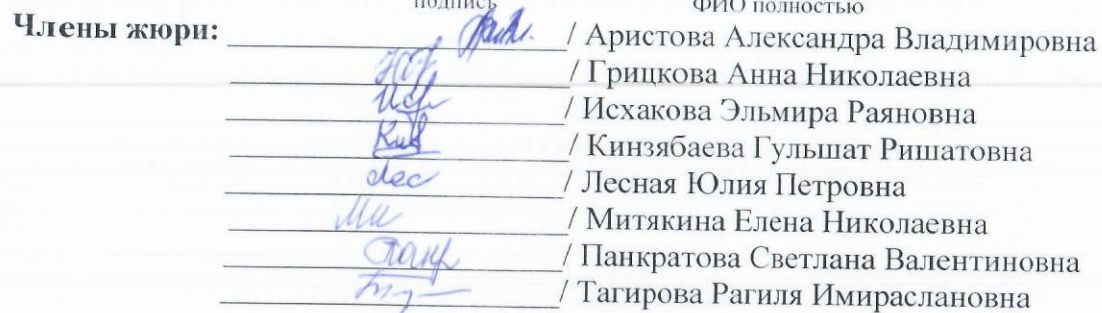 подпись ФИО полностью
Члены жюри: / Аристова Александра Владимировна
/ Грицкова Анна Николаевна
/ Исхакова Эльмира Раяновна
/ Кинзябаева Гульшат Ришатовна
/ Лесная Юлия Петровна
/ Митякина Елена Николаевна
/ Панкратова Светлана Валентиновна
/ Тагирова Рагиля Имираслановна